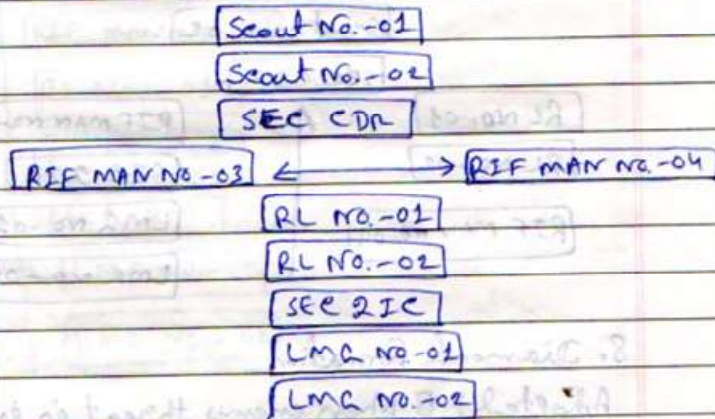 Scout No.-01
Scout No.-02
SEC CDR
RIF MAN NO-03 ⟷ RIF MAN NO.-04
RL NO.-01
RL NO.-02
SEC 2IC
LMG NO-01
LMG NO.-02